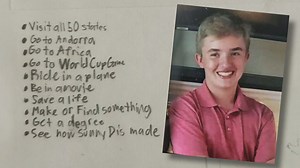 Visit all 50 states
Go to Andorra
Go to Africa
Go to World Cup Game
Ride in a plane
Be in a movie
Save a life
Make or Find something
Get a degree
See how Sunny D is made